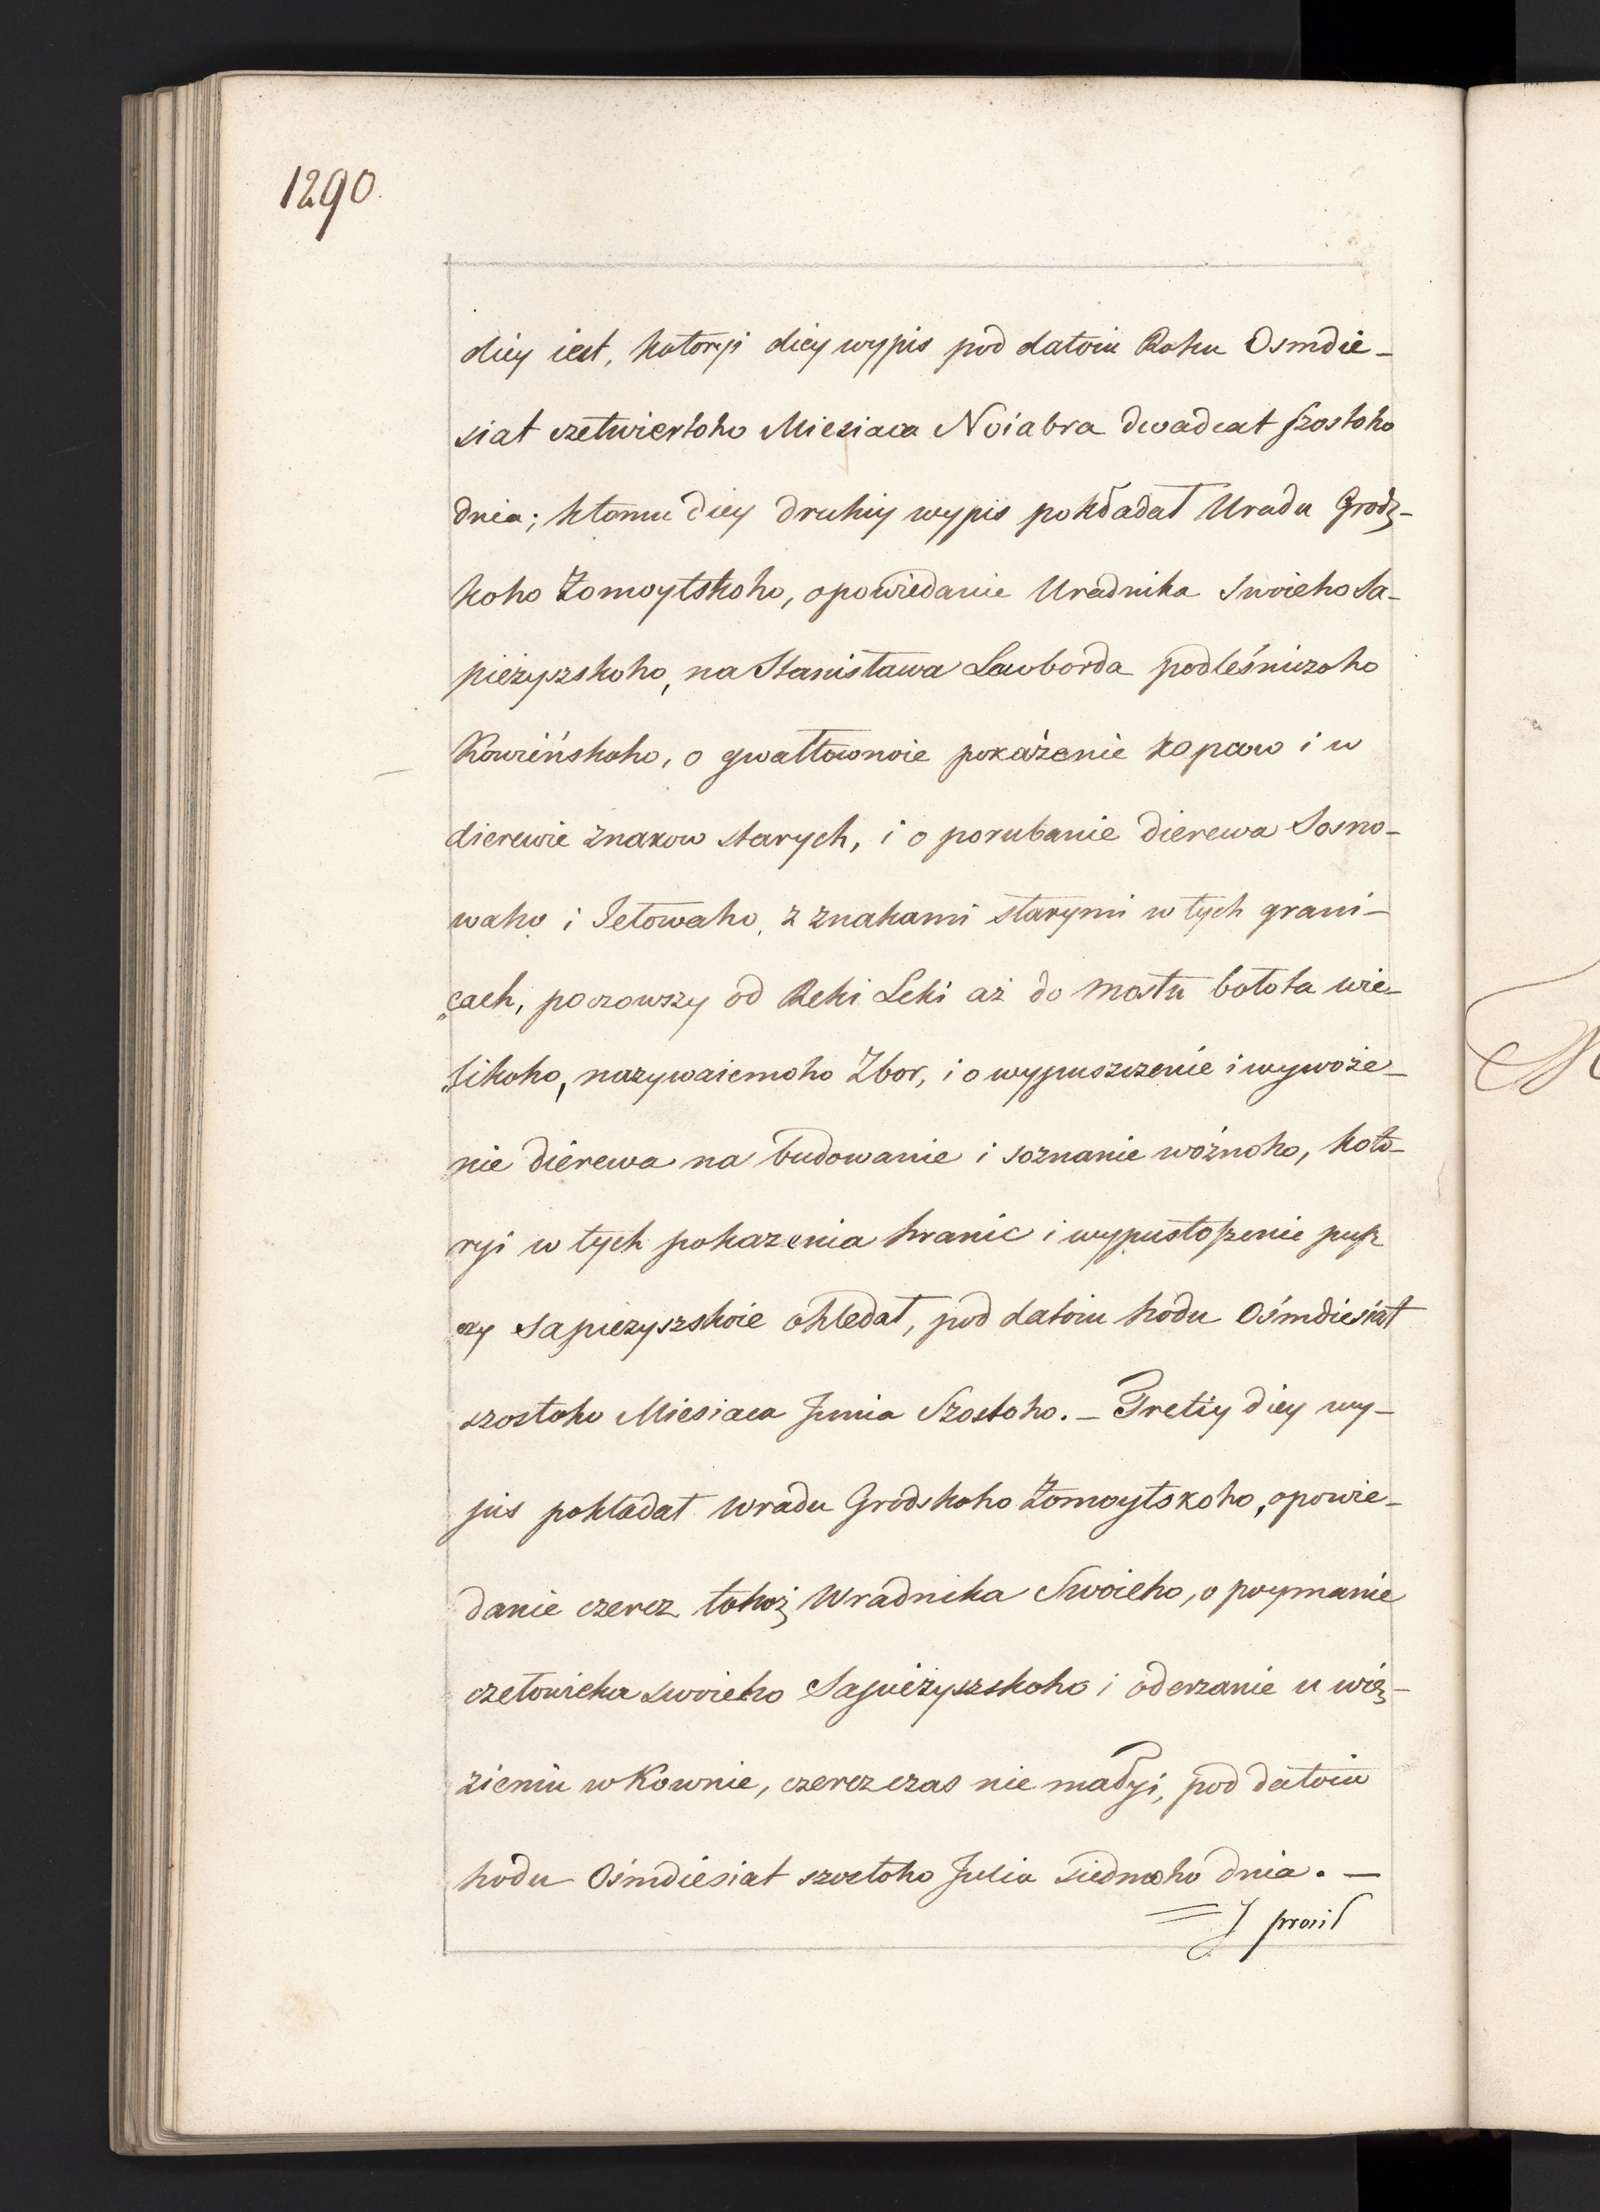 1290.
diey iest, kotoryi diey wypis pod datoiu Roku Osmdie-
siat czetwiertoho Miesiaca Noiabra dwadcat szostoho
dnia; ktomu diey druhiy wypis pokładał Uradu Grodz-
koho Żomoytskoho, opowiedanie Uradnika swoieho Sa-
pieżyszskoho, na Stanisława Lawborda podleśniczoho
Kowieńskoho, o gwałtownoie pokażenie kopcow i w
dierewie znakow starych, i o porubanie dierewa Sosno-
waho i Jełowaho, z znakami starymi w tych grani-
„cach, poczowszy od Reki Leki aż do Mostu bołota wie-
„likoho, nazywaiemoho Zbor, i o wypuszczenie i wywoże-
nie dierewa na budowanie i soznanie woźnoho, koto-
ryi w tych pokazenia hranic i wypustoszenie pusz
czy Sapieżyszskoie ohledał, pod datoiu hodu Ośmdiesiat
szostoho Miesiaca Junia Szostoho. – Tretiy diey wy-
pis pokładał wradu Grodskoho Żomoytskoho, opowie-
danie czerez tohoż Wradnika Swoieho, o poymanie
człowieka swoieho Sapieżyszskoho i oderżanie u wię-
zieniu w Kownie, czerez czas nie małyi, pod datoiu
hodu Ośmdiesiat szostoho Julia siedmoho dnia. –
= J prosił